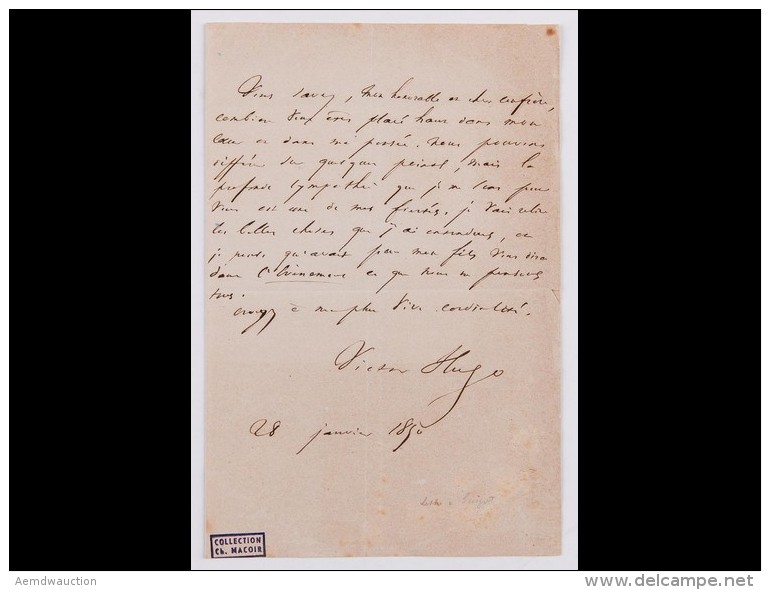 Vous savez, mon honorable et cher confrère,
combien vous êtes placé haut dans mon
cœur et dans ma pensée. nous pouvons
différer sur quelques points, mais la
profonde sympathie que je me sens pour
vous est une de mes fiertés. je vais relire
les belles choses que j'ai entendues, et
je pense qu'avant peu mon fils vous dira
dans l'Événement ce que nous en pensons
tous.
croyez à ma plus vive cordialité.
Victor Hugo
28 janvier 1850
COLLECTION
Ch. MACOIR
Aemdwauction
delcampe.net